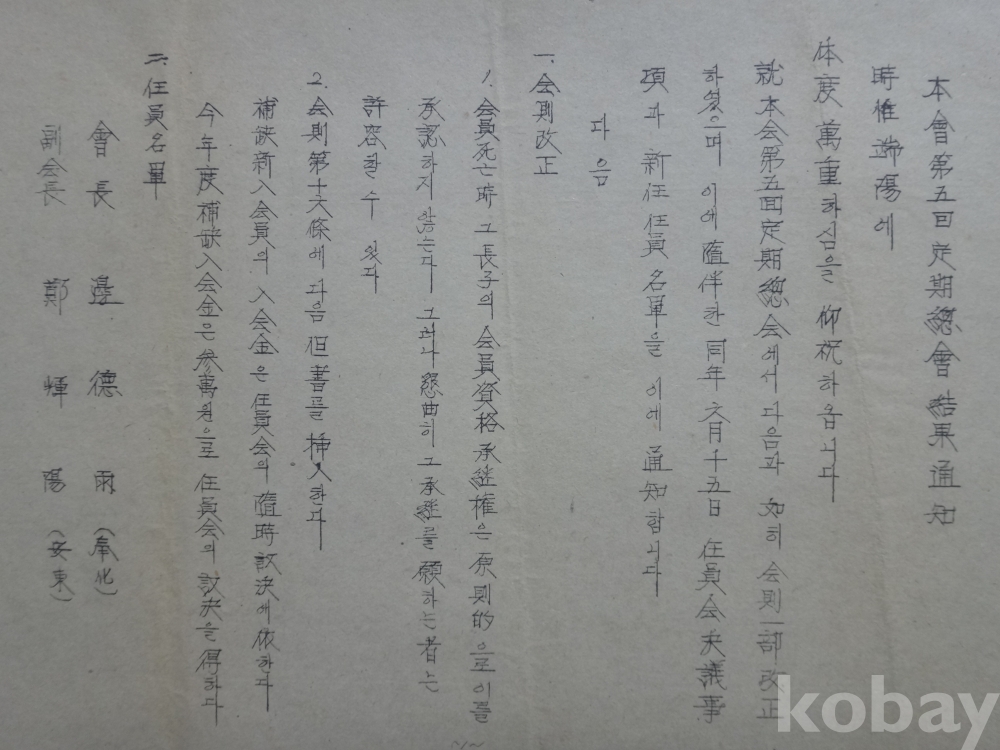 本會第五回定期總會結果通知
時惟端陽에
体度萬重하심을 仰祝하옵니다
就本会第五回定期總会에서 다음과 如히 会則一部改正
하였으며 이에 隨伴한 同年 六月十五日 任員会 決議事
項과 新任任員名單을 이에 通知합니다
다음
一. 会則改正
1. 会員死亡時 그 長子의 会員資格承継權은 原則的으로 이를
承認하지 않는다 그러나 懇曲히 그 承継를 願하는 者는
許容할 수 있다
2. 会則第十六條에 다음 但書를 挿入한다
補缺新入会員의 入会金은 任員会의 隨時議決에 依한다
今年度補缺入会金은 參萬원으로 任員会의 議決을 得하다
二. 任員名單
會長 邊德雨 (奉化)
副会長 鄭輝陽 (安東)
kobay